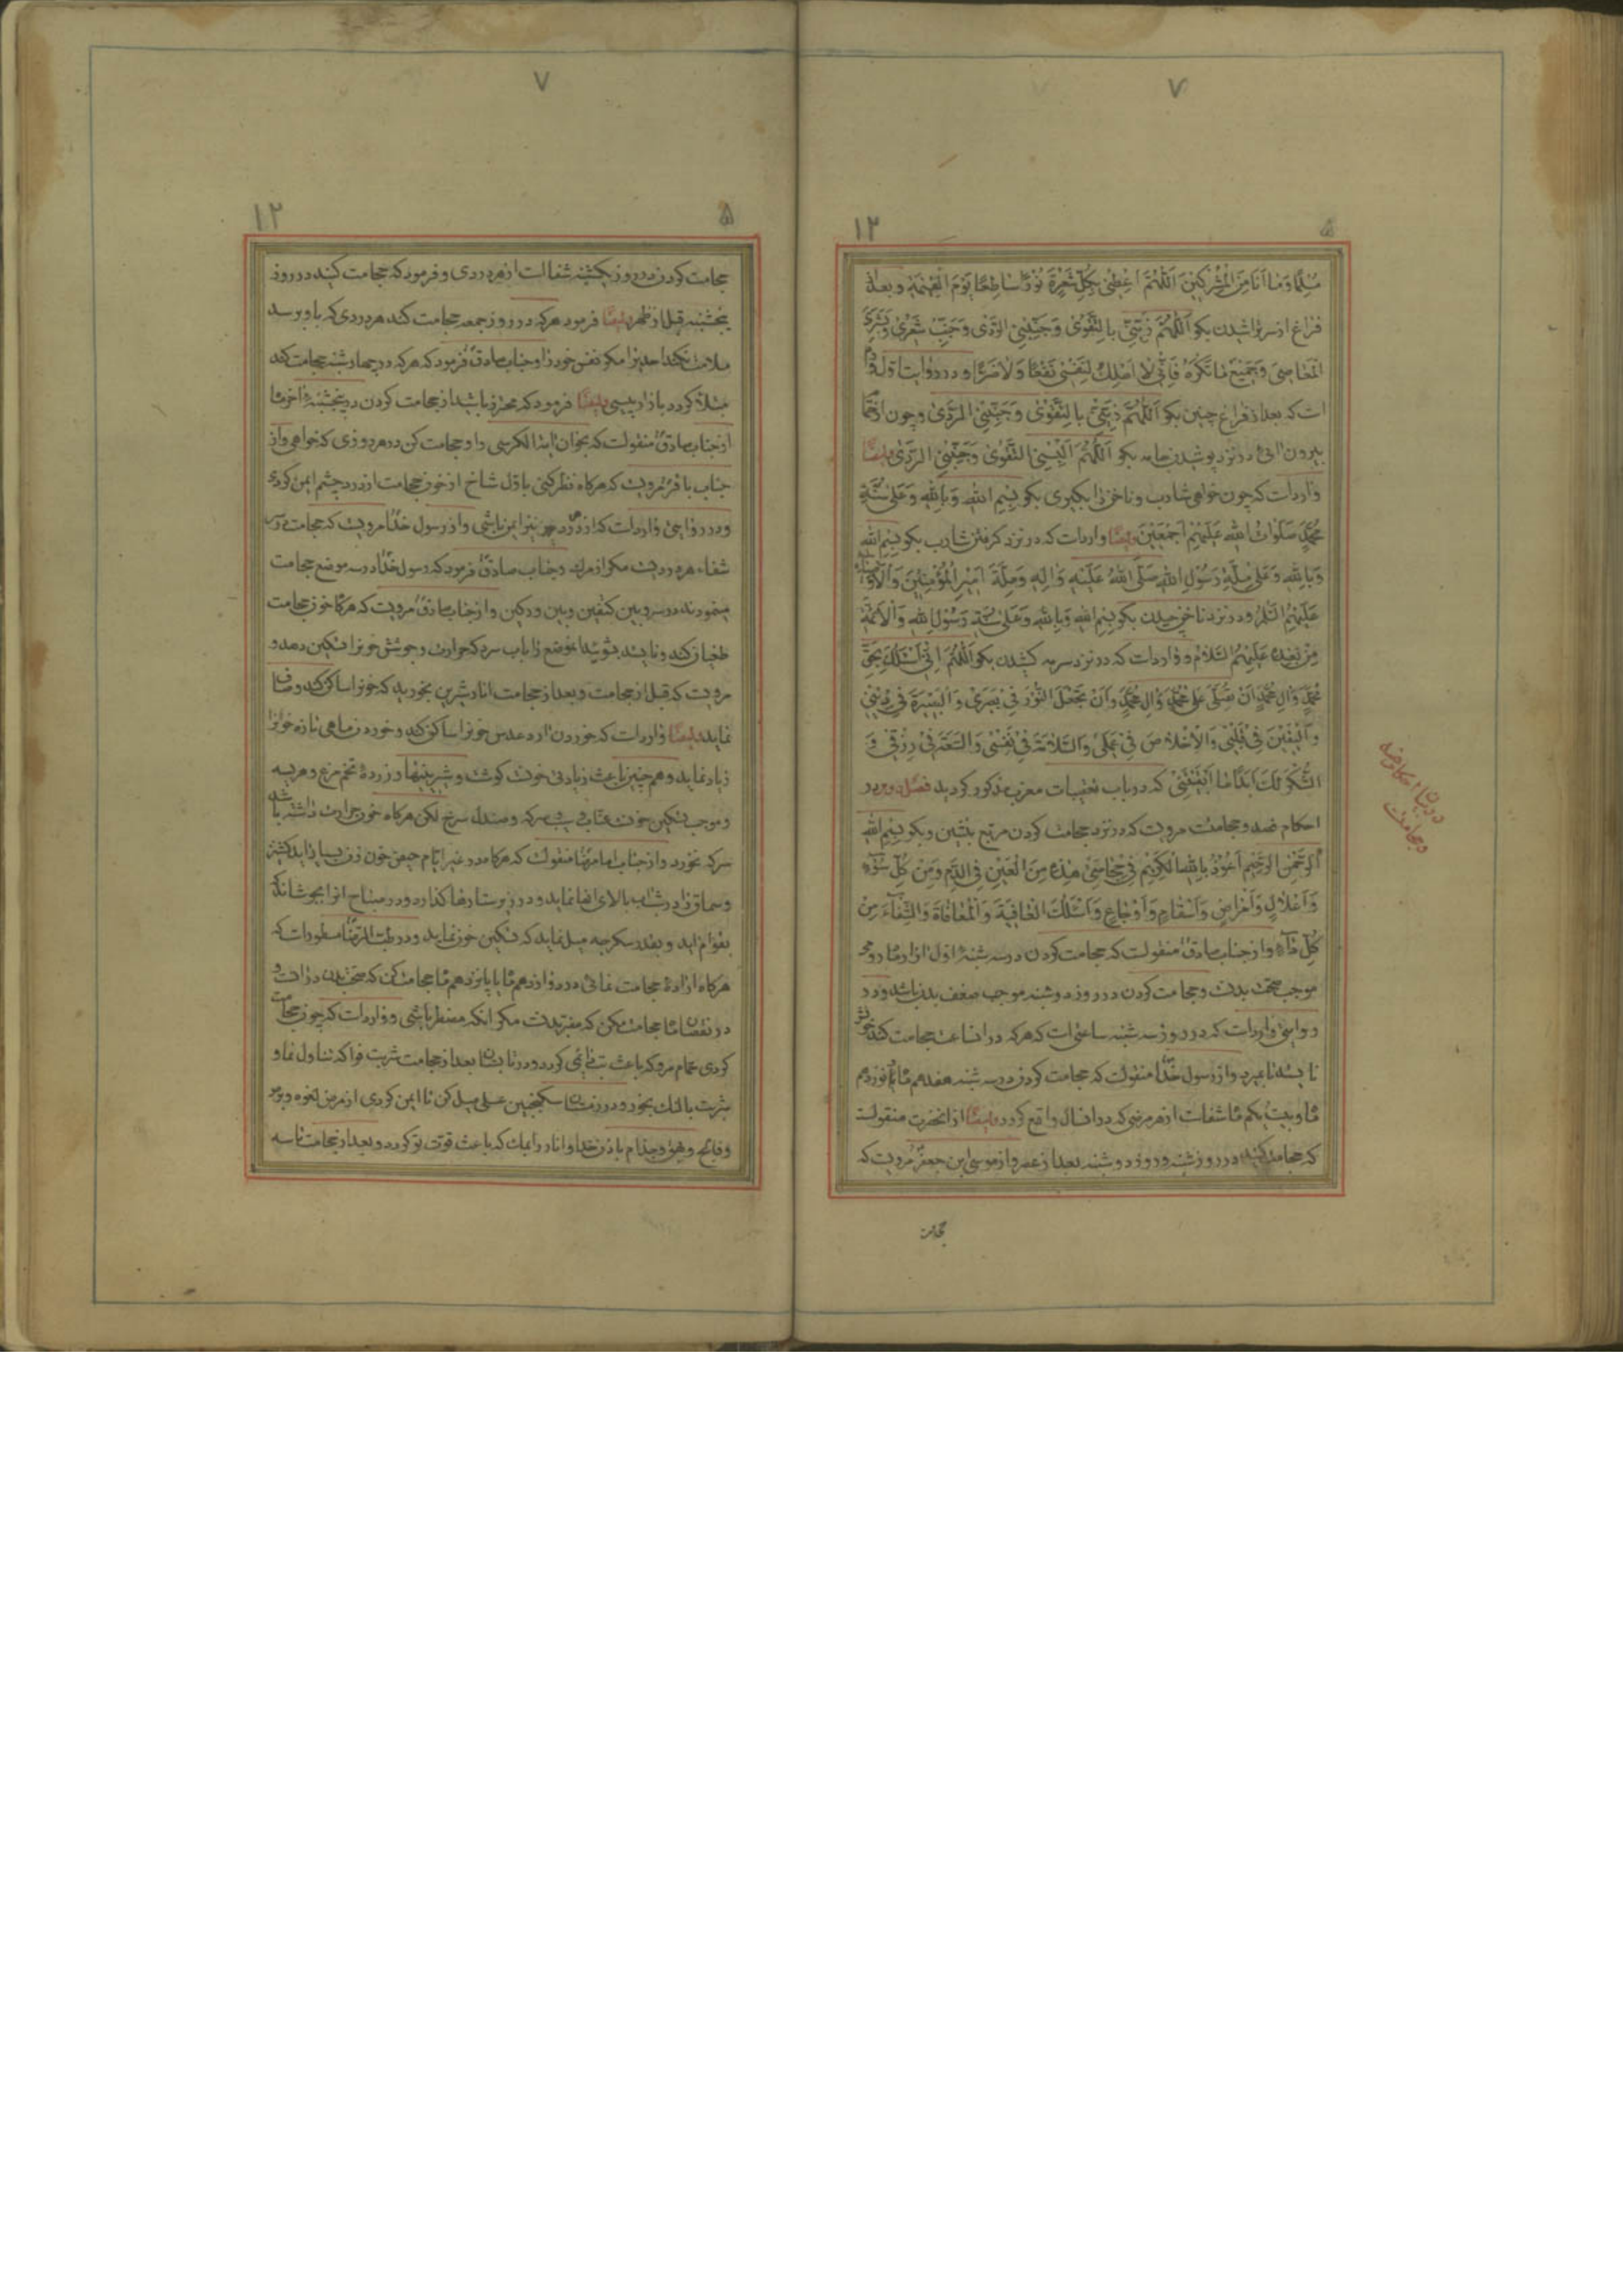 ۷
۱۲
۵
مُسْلِمًا وَمَا اَنَا مِنَ الْمُشْرِكِينَ اَللّٰهُمَّ اَعْطِنِی بِكُلِّ شَعْرَةٍ نُورًا سَاطِعًا يَوْمَ الْقِيٰمَةِ و بعد از
فراغ از سر تراشیدن بکو اَللّٰهُمَّ زَيِّنِّی بِالتَّقْوٰی وَجَنِّبْنِی الرَّدٰی وَجَنِّبْ شَعْرِی وَبَشَرِیَ
الْمَعَاصِیَ وَجَمِيعَ مَا تَكْرَهُ فَاِنِّی لَا اَمْلِكُ لِنَفْسِی نَفْعًا وَلَا ضَرًّا و در روایت اول
است که بعد از فراغ چنین بکو اَللّٰهُمَّ زَيِّنِّی بِالتَّقْوٰی وَجَنِّبْنِی الرَّدٰی و چون از حمام
بیرون ائی و در نزد پوشیدن جامه بکو اَللّٰهُمَّ اَلْبِسْنِی التَّقْوٰی وَجَنِّبْنِی الرَّدٰی ایضًا
وارداست که چون خواهی شارب و ناخن را بکیری بکو بِسْمِ اللّٰهِ وَبِاللّٰهِ وَعَلٰی سُنَّةِ
مُحَمَّدٍ صَلَوَاتُ اللّٰهِ عَلَيْهِمْ اَجْمَعِينَ ایضًا وارداست که در نزد کرفتن شارب بکو بِسْمِ اللّٰهِ
وَبِاللّٰهِ وَعَلٰی مِلَّةِ رَسُولِ اللّٰهِ صَلَّی اللّٰهُ عَلَيْهِ وَاٰلِهِ وَمِلَّةِ اَمِيرِ الْمُؤْمِنِينَ وَالْاَوْصِيَاءِ
عَلَيْهِمُ السَّلَامُ و در نزد ناخن چیدن بکو بِسْمِ اللّٰهِ وَبِاللّٰهِ وَعَلٰی سُنَّةِ رَسُولِ اللّٰهِ وَالْاَئِمَّةِ
مِنْ بَعْدِهِ عَلَيْهِمُ السَّلَامُ و وارداست که در نزد سرمه کشیدن بکو اَللّٰهُمَّ اِنِّی اَسْئَلُكَ بِحَقِّ
مُحَمَّدٍ وَاٰلِ مُحَمَّدٍ اَنْ تُصَلِّیَ عَلٰی مُحَمَّدٍ وَاٰلِ مُحَمَّدٍ وَاَنْ تَجْعَلَ النُّورَ فِی بَصَرِی وَالْبَصِيرَةَ فِی دِينِی
وَالْيَقِينَ فِی قَلْبِی وَالْاِخْلَاصَ فِی عَمَلِی وَالسَّلَامَةَ فِی نَفْسِی وَالسَّعَةَ فِی رِزْقِی وَ
الشُّكْرَ لَكَ اَبَدًا مَا اَبْقَيْتَنِی که در باب تعقیبات مغرب مذکور کردید فصل دویم در
احکام فصد و حجامت مرویست که در نزد حجامت کردن مربع بنشین و بکو بِسْمِ اللّٰهِ
الرَّحْمٰنِ الرَّحِيمِ اَعُوذُ بِاللّٰهِ الْكَرِيمِ فِی حِجَامَتِی هٰذِهِ مِنَ الْعَيْنِ فِی الدَّمِ وَمِنْ كُلِّ سُوۤءٍ
وَاَعْلَالٍ وَاَمْرَاضٍ وَاَسْقَامٍ وَاَوْجَاعٍ وَاَسْئَلُكَ الْعَافِيَةَ وَالْمُعَافَاةَ وَالشِّفَاۤءَ مِنْ
كُلِّ دَاۤءٍ و از جناب صادق منقولست که حجامت کردن در سه شنبهٔ اول ازار ماه رومی
موجب صحت بدنست و حجامت کردن در روز دوشنبه موجب ضعف بدن باشد و در
روایتی وارداست که در روز سه شنبه ساعتی است که هر که در انساعت حجامت کند خون
نایستد تا بمیرد و از رسول خدا منقولست که حجامت کردن در سه شنبه هفدهم ماه یا نوزدهم
ماه و بیست یکم ماه شفاست از هر مرضی که در انسال واقع کردد ایضًا از انحضرت منقولست
که حجامت کنید در روز شنبه و روز دوشنبه بعد از عصر و از موسی ابن جعفر مرویست که
حجامت
در بیان احکام فصد
و حجامت
۷
۱۲
۵
حجامت کردن در روز یکشنبه شفااست از هر دردی و فرمود که حجامت کنید در روز
پنجشنبه قبل از ظهر ایضًا فرمود هر که در روز جمعه حجامت کند هر دردی که باو برسد
ملامت نکند احدیرا مکر نفس خود را و جناب صادق فرمود که هر که در چهارشنبه حجامت کند
مبتلا کردد بازار پیسی ایضًا فرمود که محترز باشید از حجامت کردن در پنجشنبهٔ اخر ماه
از جناب صادق منقولست که بخوان ایة الکرسی را و حجامت کن در هر روزی که خواهی و از
جناب باقر مرویست که هر کاه نظر کنی باول شاخ از خون حجامت از درد چشم ایمن کردی
و در روایتی وارداست که از درد نیز ایمن باشی و از رسول خدا مرویست که حجامت در سر
شفاء هر دردیست مکر از مرک و جناب صادق فرمود که رسول خدا در سه موضع حجامت
مینمودند در سر و بین کتفین و بین ورکین و از جناب صادق مرویست که هر کاه خون حجامت
طغیان کند و نایستد بشوئید انموضع را باب سرد که حرارت و جوشش خونرا تسکین دهد و
مرویست که قبل از حجامت و بعد از حجامت انار شیرین بخورید که خونرا ساکن کند و صاف
نماید ایضًا وارداست که خوردن ارد عدس خونرا ساکن کند و خوردن ماهی تازه خونرا
زیاد نماید و همچنین باعث زیادتی خونست کوشت و شیرینیها و زردهٔ تخم مرغ و هریسه
و موجب تسکین خونست عناب و سرکه و صندل سرخ لکن هر کاه خون حرارت داشته باشد
سرکه نخورد و از جناب امام رضا منقولست که هر کاه در غیر ایام حیض خون زن بسیار اید کشنیز
و سماق را در شب بالای بام نماید و در زیر ستارها کذارد و در صباح انرا بجوشاند که
بقوام اید و بقدر سکرجه میل نماید که تسکین خون نماید و در طب الرضا مسطور است که
هر کاه ارادهٔ حجامت نمائی در دوازدهم ماه یا پانزدهم ماه حجامت کن که صحت بدن در انست و
در نقصان ماه حجامت مکن که مضر بدنست مکر انکه مضطر باشی و وارداست که چون حجامت
کردی بحمام مرو که باعث تب دایمی کردد و در تابستان بعد از حجامت شربت فواکه تناول نما و
شربت بالنک بخور و در زمستان سکنجبین عسلی میل کن تا ایمن کردی از مرض لقوه و برص
و فالج و بهق و جذام باذن خدا و انار را بمک که باعث قوت تو کردد و بعد از حجامت تا سه